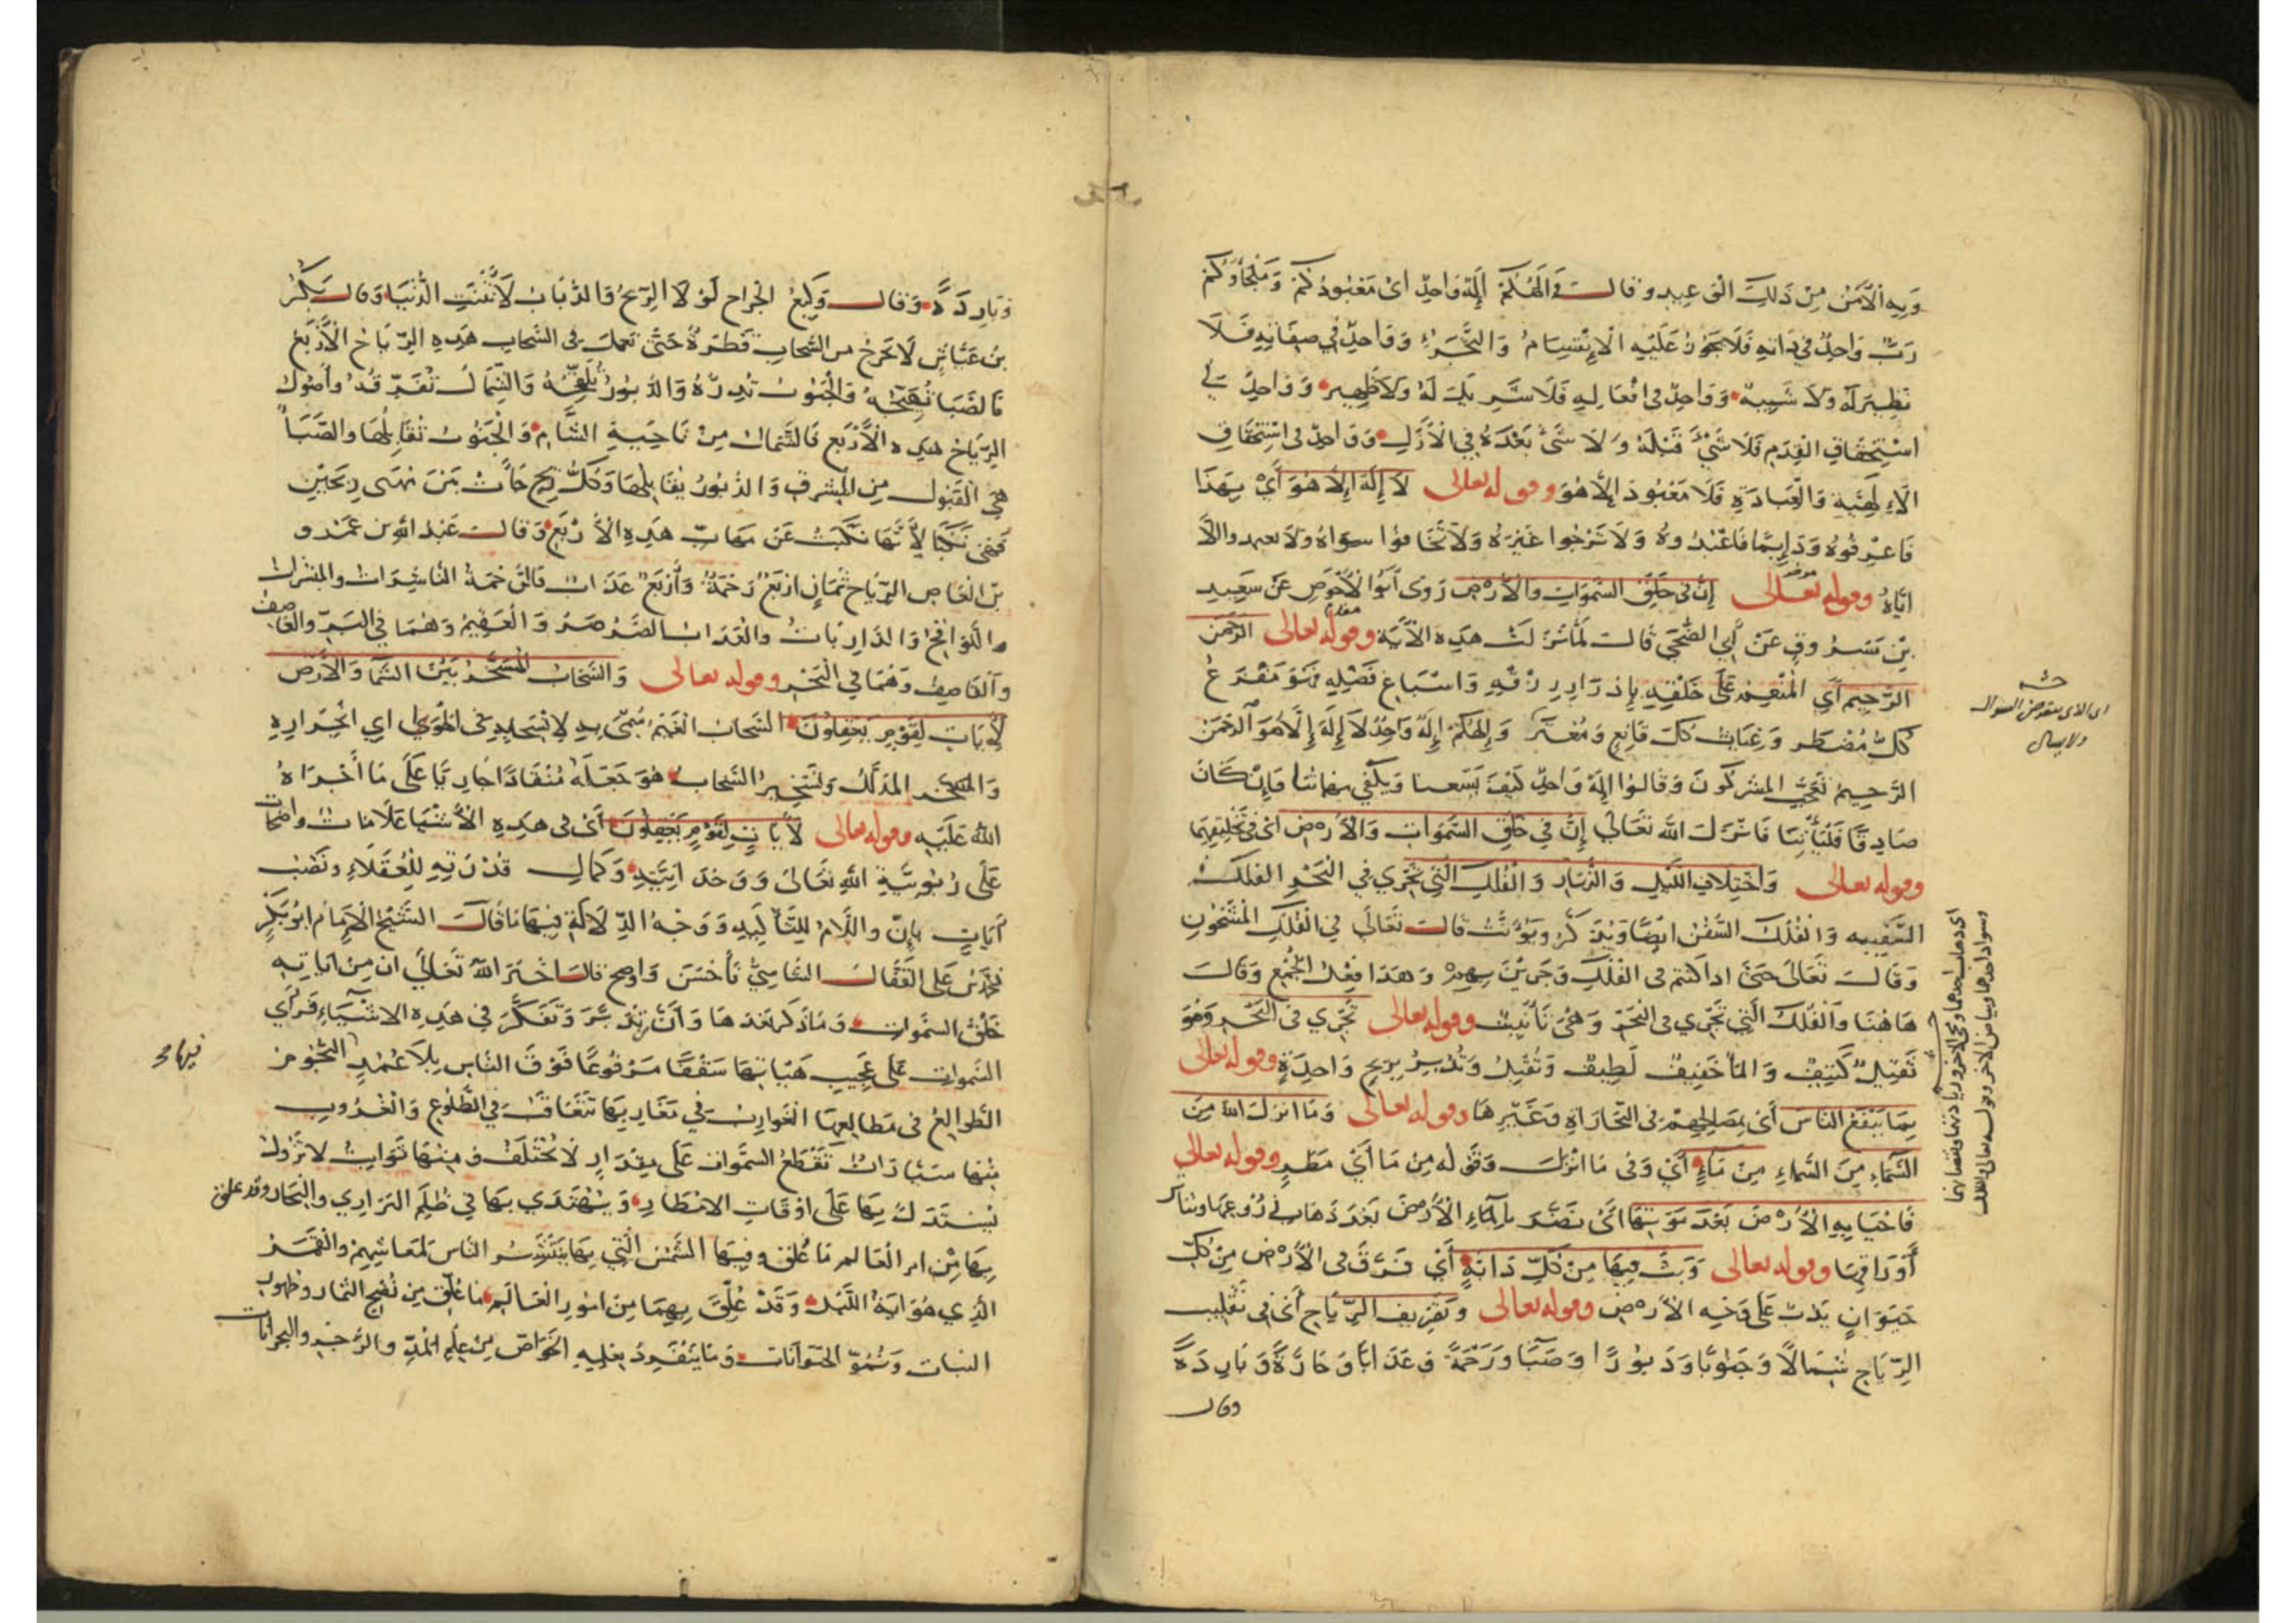 وَبِهِ الْأَمْنُ مِنْ ذَلِكَ الْوَعِيدِ وقالت وَإِلَهُكُمْ إِلَهٌ وَاحِدٌ اى مَعْبُودُكُمْ وَمَلْجَأُكُمْ
رَبٌّ وَاحِدٌ فِي ذَاتِهِ فَلَا يَجُوزُ عَلَيْهِ الْاِنْقِسَامُ وَالتَّجَزُّءُ وَوَاحِدٌ فِي صِفَاتِهِ فَلَا
نَظِيرَ لَهُ وَلَا شَبِيهَ وَوَاحِدٌ فى افْعَالِهِ فَلَا شَرِيكَ لَهُ وَلَا ظَهِيرَ وَوَاحِدٌ فِي
اسْتِحْقَاقِ الْقِدَمِ فَلَا شَيْءَ قَبْلَهُ وَلَا شَيْءَ بَعْدَهُ فِي الْأَزَلِ وَوَاحِدٌ فى اسْتِحْقَاقِ
الْإِلَهِيَّةِ وَالْعِبَادَةِ فَلَا مَعْبُودَ إِلَّا هُوَ وقوله تعالى لَا إِلَهَ إِلَّا هُوَ أَيْ بِهَذَا
فَاعْرِفُوهُ وَدَايِمًا فَاعْبُدُوهُ وَلَا تَرْجُوا غَيْرَهُ وَلَا تَخَافُوا سِوَاهُ وَلَا تعبدوا إلا
ايَّاهُ وقوله تعالى إِنَّ فى خَلْقِ السَّمَوَاتِ وَالْأَرْضِ رَوَى أَبُو الْأَحْوَصِ عَنْ سَعِيدِ
بْنِ مَسْرُوقٍ عَنْ أَبِي الضُّحَى قَالَ لَمَّا نَزَلَتْ هَذِهِ الْآيَةُ وقوله تعالى الرَّحْمَنُ
الرَّحِيمُ أَيِ الْمُنْعِمُ عَلَى خَلْقِهِ بِإِدْرَارِ رِزْقِهِ وَاسْبَاغِ فَضْلِهِ فَهُوَ مَفْزَعُ
كُلِّ مُضْطَرٍّ وَغِيَاثُ كُلِّ قَانِعٍ وَمُعْتَرٍّ وَإِلَهُكُمْ إِلَهٌ وَاحِدٌ لَا إِلَهَ إِلَّا هُوَ الرَّحْمَنُ
الرَّحِيمُ تَعَجَّبَ المشركُونَ وَقَالُوا إِلَهٌ وَاحِدٌ كَيْفَ يَسَعُنا وَيَكْفِي فَإِنْ كَانَ
صَادِقًا فَلْيَأْتِنَا فَانْزَلَ اللهُ تَعَالَى إِنَّ فِي خَلْقِ السَّمَوَاتِ وَالْأَرْضِ اى فى تَخْلِيقِهِمَا
وقوله تعالى وَاخْتِلَافِ اللَّيْلِ وَالنَّهَارِ وَالْفُلْكِ الَّتِي تَجْرِي فِي الْبَحْرِ الفلك
السَّفِينِه وَالْفُلْكُ السُّفُنُ ايْضًا وَيُذَكَّرُ وَيُؤَنَّثُ قَالَ تَعَالَى فِي الْفُلْكِ الْمَشْحُونِ
وَقَالَ تَعَالَى حَتَّى اذا كنتم فى الفلك وَجَرَيْنَ بِهِمْ وَهَذَا فِعْلُ الْجَمْعِ وَقَالَ
هَاهُنَا وَالْفُلْكِ الَّتِي تَجْرِي فى الْبَحْرِ وَهِيَ تَأْنِيثٌ وقوله تعالى تَجْرِي فى الْبَحْرِ وَهُوَ
ثَقِيلٌ كَثِيفٌ وَالْمَاءُ خَفِيفٌ لَطِيفٌ وَتُقْبِلُ وَتُدْبِرُ بِرِيحٍ وَاحِدَةٍ وقوله تعالى
بِمَا يَنْفَعُ النَّاسَ أَىْ بِمَصَالِحِهِمْ فى التِّجَارَاةِ وَغَيْرِهَا وقوله تعالى وَمَا انْزَلَ اللهُ مِنَ
السَّمَاءِ مِنَ السَّمَاءِ مِنْ مَاءٍ أَيْ وَفى مَا انْزَلَ وَقَوْلُه مِنْ مَاءٍ أَيْ مَطَرٍ وقوله تعالى
فَاحْيَا بِهِ الْأَرْضَ بَعْدَ مَوْتِهَا أَىْ نَضَّرَ بِالْمَاءِ الْأَرْضَ بَعْدَ ذَهَابِ زُرُوعِهَا وتناثر
أَوْرَاقِهَا وقوله تعالى وَبَثَّ فِيهَا مِنْ كُلِّ دَابَّةٍ أَىْ فَرَّقَ فى الْأَرْضِ مِنْ كُلِّ
حَيَوَانٍ يَدِبُّ عَلَى وَجْهِ الْأَرْضِ وقوله تعالى وَتَصْرِيفِ الرِّيَاحِ أَىْ فى تَقْلِيبِ
الرِّيَاحِ شِمَالًا وَجَنُوبًا وَدَبُورًا وَصَبًا وَرَحْمَةً وَعَذَابًا وَحَارَّةً وَبَارِدَةً
وقال
اى الذى يتعرض للسؤال
ولا يسال
اى ذهاب احدهما ومجئ الآخر وزيادتهما ونقصانهما
وسواد احدهما وبياض الآخر وقوله تعالى والفلك
وَبَارِدَةً وَقَالَ وَكِيعُ الجراح لَوْ لَا الرِّيحُ وَالذُّبَابُ لَأَنْتَنَتِ الدُّنْيَا وَقال بَكْرُ
بْنُ عَيَّاشٍ لَا تخْرجُ من السَّحَابِ قَطْرَةٌ حَتَّى تعمل فى السَّحابِ هَذِهِ الرِّيَاحُ الْأَرْبَعُ
فَالصَّبَا تُهَيِّجُهُ وَالْجَنُوبُ تُدِرُّهُ وَالدَّبُورُ تُلَقِّحُهُ وَالشَّمَالُ تُفَرِّقُهُ وَأُصُولُ
الرِّيَاحِ هَذِهِ الْأَرْبَعِ فَالشَّمَالُ مِنْ نَاحِيَةِ الشَّامِ وَالْجَنُوبُ تُقَابِلُهَا وَالصَّبَا
هِيَ الْقَبُولُ مِنَ الْمَشْرِقِ وَالدَّبُورُ يُقَابِلُهَا وَكُلُّ رِيحٍ جَاءَتْ بَيْنَ مَهَبَّى رِيحَيْنِ
فَهِيَ نَكْبَا لِأَنَّهَا نَكَبَتْ عَنْ مَهَابِّ هَذِهِ الْأَرْبَعِ وَقَالَ عَبْدُ اللهِ بن عَمْرو
بْنِ الْعَاصِ الرِّيَاحُ ثَمَانٍ ارْبَعٌ رَحْمَةٌ وَأَرْبَعٌ عَذَابٌ فَالرَّحْمَةُ النَّاشِرَاتُ وَالْمُبَشِّرَاتُ
وَاللَّوَاقِحُ وَالذَّارِيَاتُ وَالْعَذَابُ الصَّرْصَرُ وَالْعَقِيمُ وَهُمَا فِي الْبَرِّ وَالْعَاصِفُ
وَالْقَاصِفُ وَهُمَا فِي الْبَحْرِ وقوله تعالى وَالسَّحَابِ الْمُسَخَّرِ بَيْنَ السَّمَا وَالْأَرْضِ
لَآيَاتٍ لِقَوْمٍ يَعْقِلُونَ السَّحَابُ الْغَيْمُ سُمِّيَ بِهِ لِانْسِحَابِهِ فى الْهَوَاءِ اي انْجِرَارِهِ
وَالْمُسَخَّرُ الْمُذَلَّلُ وَتَسْخِيرُ السَّحَابِ هُوَ جَعْلُهُ مُنْقَادًا جَارِيًا عَلَى مَا أَجْرَاهُ
اللهُ عَلَيْهِ وقوله تعالى لَآيَاتٍ لِقَوْمٍ يَعْقِلُونَ أَىْ فى هَذِهِ الْأَشْيَا عَلَامَاتٌ واضحات
عَلَى رُبُوبِيَّةِ اللهِ تَعَالَى وَوَحْدَانِيَّتِهِ وَكَمَالِ قُدْرَتِهِ لِلْعُقَلَاءِ وَنَصْبُ
آيَاتٍ بِإِنَّ وَاللَّامُ لِلتَّأْكِيدِ وَوَجْهُ الدِّلَالَةِ فِيهَا مَا قَالَ الشَّيْخُ الْإِمَامُ ابُو بَكْرٍ
مُحَمَّدُ بْنُ عَلَى الْقَفَّالُ الشَّاشِيُّ فَأَحْسَنَ وَاوضح قال اخْبَرَ اللهُ تَعَالَى ان مِنْ آيَاتِهِ
خَلْقُ السَّمَوَاتِ وَمَا ذكر بَعْدَهَا وَأَنَّ مَنْ تَدَبَّرَ وَتَفَكَّرَ فِي هَذِهِ الاشْيَاءِ فَرَأَى
السَّموات عَلَى عَجِيبِ هَيْئَاتِهَا سَقْفًا مَرْفُوعًا فَوْقَ النَّاسِ بِلَا عَمَدٍ النُّجُوم
فيها
الطَّوَالِعُ فى مَطَالِعِهَا الْغَوَارِبُ فِي مَغَارِبِهَا تَتَعَاقَبُ فى الطُّلُوعِ وَالْغُرُوبِ
مِنْهَا سَيَّارَاتٌ تَقْطَعُ السَّمَوَات عَلَى مِقْدَارٍ لَا يَخْتَلِفُ وَمِنْهَا ثَوَابِتُ لَا تَزُولُ
يُسْتَدَلُّ بِهَا عَلَى اوْقَاتِ الامْطَارِ وَيُهْتَدَى بِهَا فِي ظُلَمِ الْبَرَارِي وَالْبِحَارِ وقد علق
بِهَا مِنْ امر الْعَالَمِ مَا عُلِّقَ وفِيهَا الشَّمْسُ الَّتِي بِهَا يَنْتَشِرُ النَّاسُ لِمَعَاشِهِمْ وَالْقَمَرُ
الَّذِي هُوَ آيَةُ اللَّيْلِ وَقَدْ عُلِّقَ بِهِمَا مِنْ امُورِ الْعَالَمِ مَا عُلِّقَ مِنْ نُضْجِ الثِّمَارِ وظهور
النبات وَنُمُوِّ الْحَيَوَانَات وَمَا يَنْفَرِدُ بِعِلْمِهِ الْخَوَاصُّ مِنْ عِلْمِ الْمَدِّ وَالْجَزْرِ والبحرانات